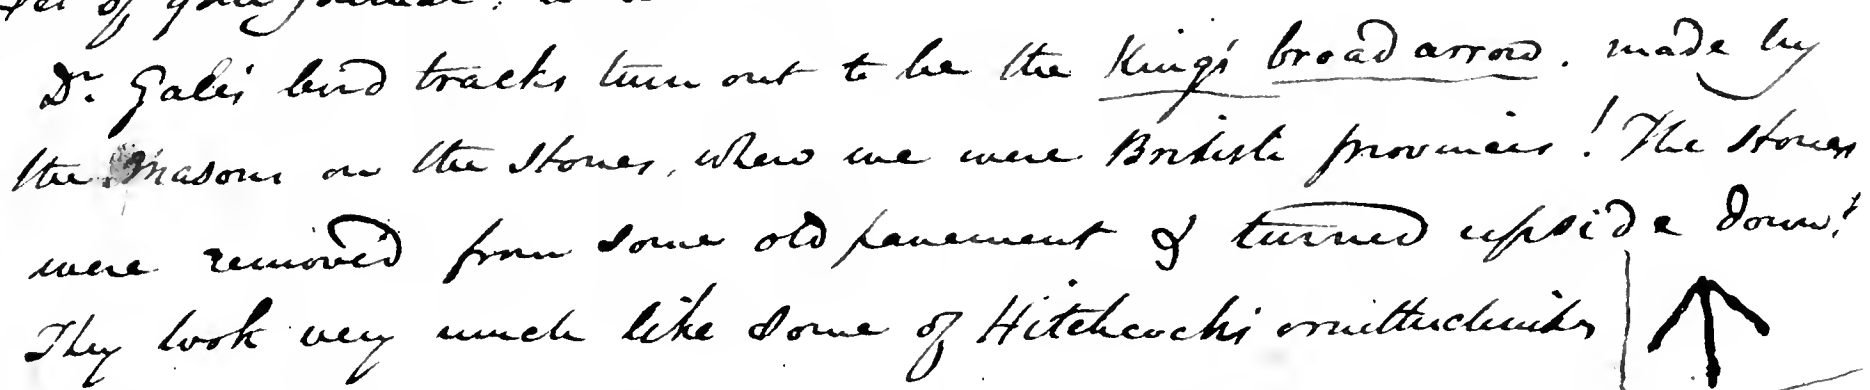 of your journal.
Dr. Gale's bird tracks turn out to be the King's broad arrow. made by
the Masons on the stones, when we were British provinces! The stones
were removed from some old pavement & turned upside down!
They look very much like some of Hitchcock's ornithichnites